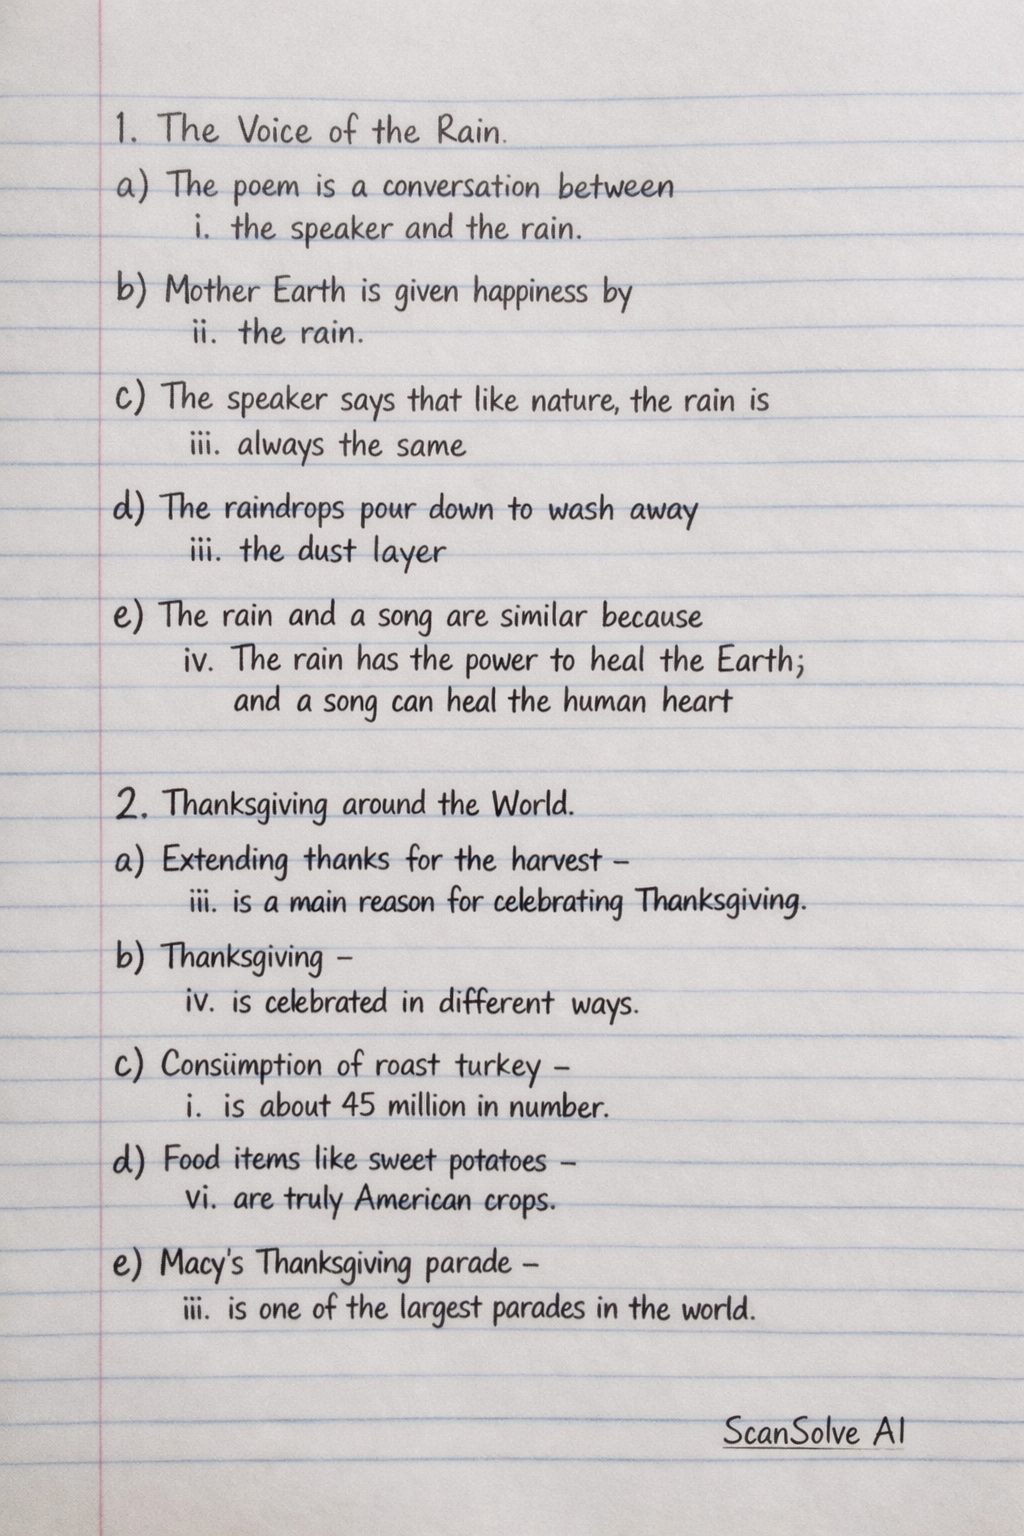 1. The Voice of the Rain.
a) The poem is a conversation between
i. the speaker and the rain.
b) Mother Earth is given happiness by
ii. the rain.
c) The speaker says that like nature, the rain is
iii. always the same
d) The raindrops pour down to wash away
iii. the dust layer
e) The rain and a song are similar because
iv. The rain has the power to heal the Earth;
and a song can heal the human heart
2. Thanksgiving around the World.
a) Extending thanks for the harvest –
iii. is a main reason for celebrating Thanksgiving.
b) Thanksgiving –
iv. is celebrated in different ways.
c) Consümption of roast turkey –
i. is about 45 million in number.
d) Food items like sweet potatoes –
vi. are truly American crops.
e) Macy's Thanksgiving parade –
iii. is one of the largest parades in the world.
ScanSolve AI